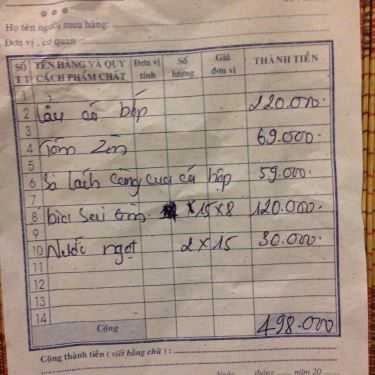 Họ tên người mua hàng:
Đơn vị, cơ quan
SỐ TT TÊN HÀNG VÀ QUY CÁCH PHẨM CHẤT Đơn vị tính Số lượng Giá đơn vị THÀNH TIỀN
1
2 Lẩu cá bớp 220.000
3
4 69.000
5
6 cá hộp 59.000
7
8 bia Sài Gòn x 15 x 8 120.000
9
10 Nước ngọt 2 x 15 30.000
11
12
13
14
Cộng 498.000
Cộng thành tiền (viết bằng chữ):
Ngày tháng năm 20